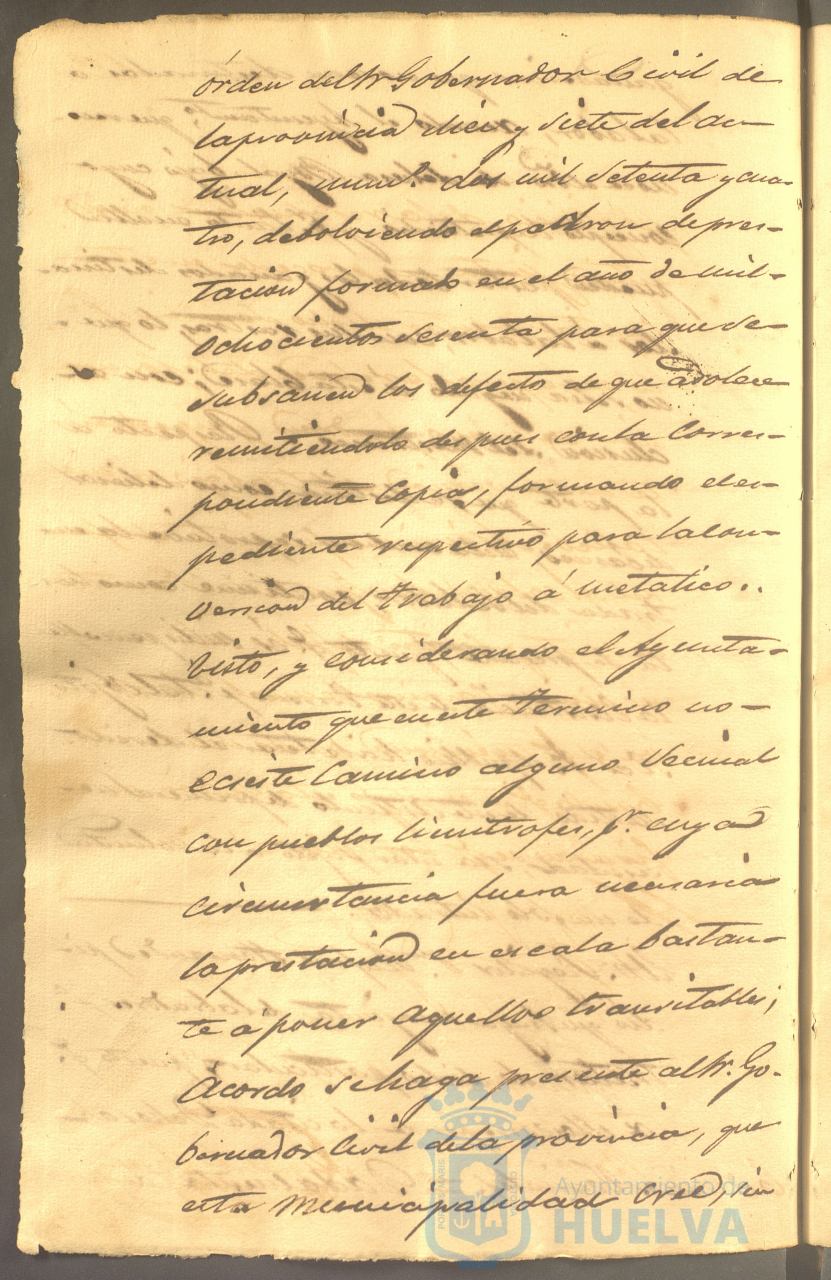 órden del Sr Gobernador Civil de
la provincia diez y siete del ac-
tual, num.º dos mil setenta y cua-
tro, debolviendo el padron de pres-
tacion formado en el año de mil-
ochocientos sesenta para que se-
subsanen los defecto de que adolece
remitiendolo despues con la Corres-
pondiente Copia, formando el es-
pediente respectivo para la con-
version del trabajo á metalico..
Visto, y considerando el Ayunta-
miento que en este termino no-
ecsiste Camino alguno Vecinal
con pueblos limitrofes, pr. cuya
circunstancia fuera necesaria
la prestacion en escala bastan-
te á poner aquellos transitables;
Acordo se haga presente al Sr. Go-
bernador Civil de la provincia, que
esta Municipalidad cree, sin
Ayuntamiento de
HUELVA